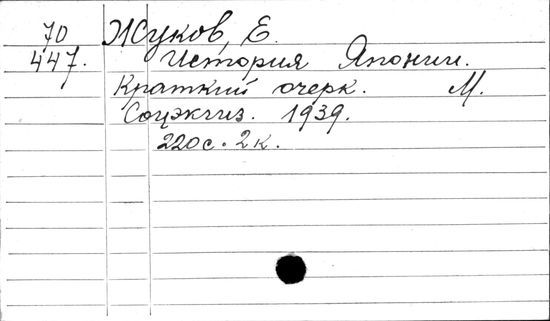 70 Жуков, Е.
447. История Японии.
Краткий очерк. М.
Соцэкгиз. 1939.
220с. 2к.